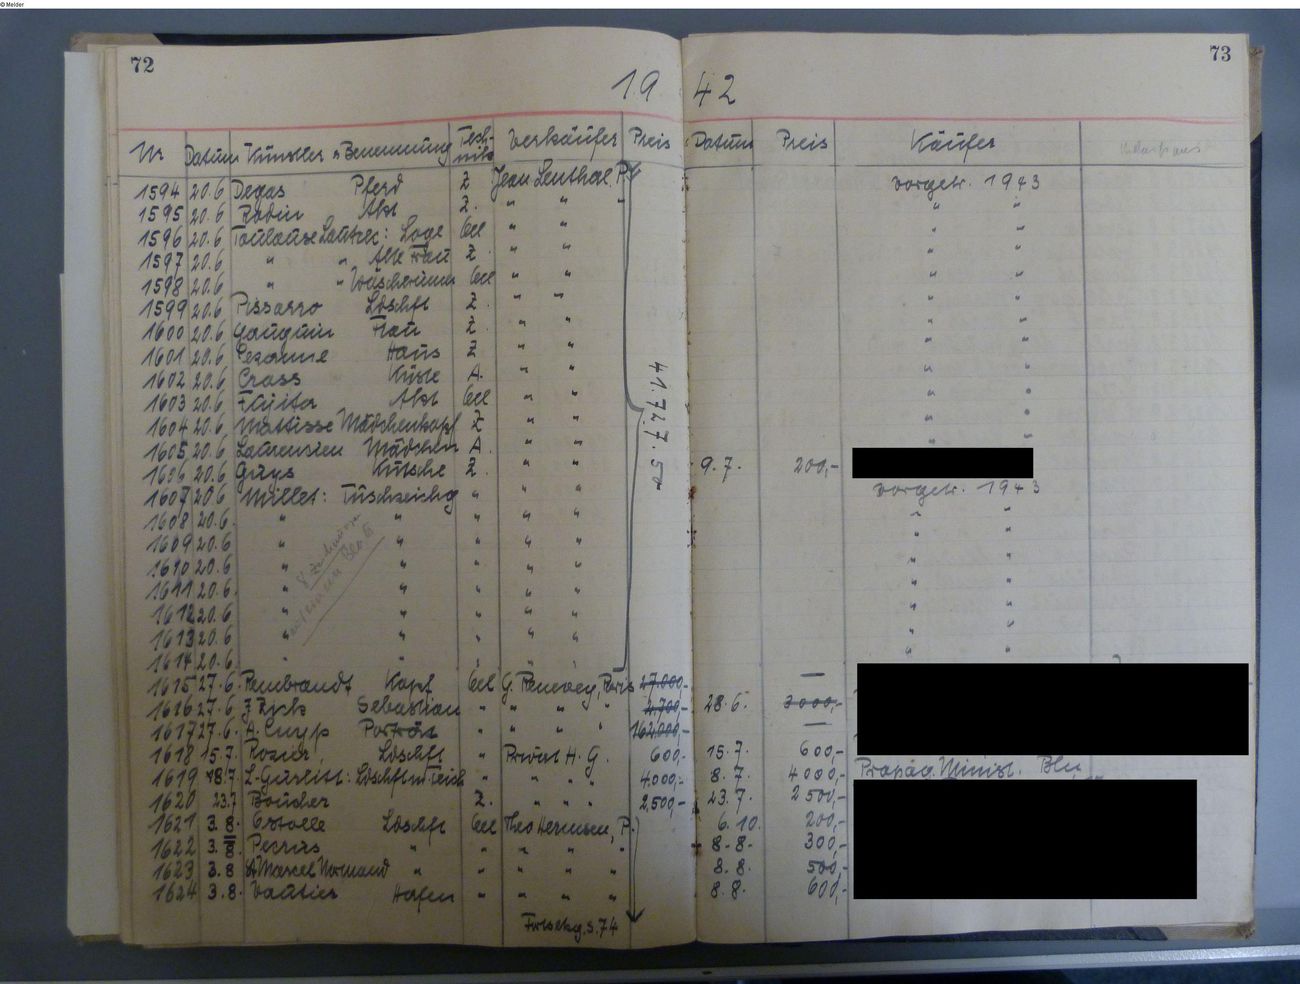 © Melder
72
73
19 42
Nr Datum Künstler u. Benennung Technik Verkäufer Preis Datum Preis Käufer
1594 20.6 Degas Pferd Z Jean Lenthal, P. vorgetr. 1943
1595 20.6 Rodin Akt Z. " " " " "
1596 20.6 Toulouse Lautrec: Loge Oel " " " "
1597 20.6 " " Alte Frau Z " " " "
1598 20.6 " " Wäscherinnen Oel " " " "
1599 20.6 Pissarro Ldschft Z. " " " "
1600 20.6 Gauguin Frau Z. " " " "
1601 20.6 Cezanne Haus Z " " " "
1602 20.6 Cross Küste A. " " " "
1603 20.6 Fujita Akt Oel " " " "
1604 20.6 Mattisse Mädchenkopf Z " " " "
1605 20.6 Laurencien Mädchen A. " " " "
41.727.50
1606 20.6 Guys Kutsche Z. " " 9.7. 200,-
1607 20.6 Millet: Tuschzeichg " " " vorgetr. 1943
1608 20.6. " " " " " " "
1609 20.6 " " " " " " "
1610 20.6 " " " " " " "
1611 20.6 " " " " " " "
1612 20.6 " " " " " " "
1613 20.6 " " " " " " "
1614 20.6 " " " " " " "
8 Zeichnungen
auf einem Blatt
1615 27.6. Rembrandt Kopf Oel G. Renevey, Paris 27.000,- —
1616 27.6 Sebastian " " " " 4.700,- 28.6. 3000,-
1617 27.6. A. Cuyp Porträt " " " " 162.000,- —
1618 15.7. Rozier, Ldschft " Privat H. G. 600,- 15.7. 600,-
1619 18.7. L. Gurlitt: Ldschft m. Teich " " " " 4.000,- 8.7. 4000,- Propag. Minist. Bln
1620 23.7 Boucher Z. " " " 2.500,- 23.7. 2500,-
1621 3.8. Ldschft Oel Theo Hermsen, P. 6.10. 200,-
1622 3.8. Pecrus " " " " " 8.8. 300,-
1623 3.8 A. Marcel Normand " " " " " 8.8. 500,-
1624 3.8. Vautier Hafen " " " " 8.8. 600,-
Fortsetzg. S. 74